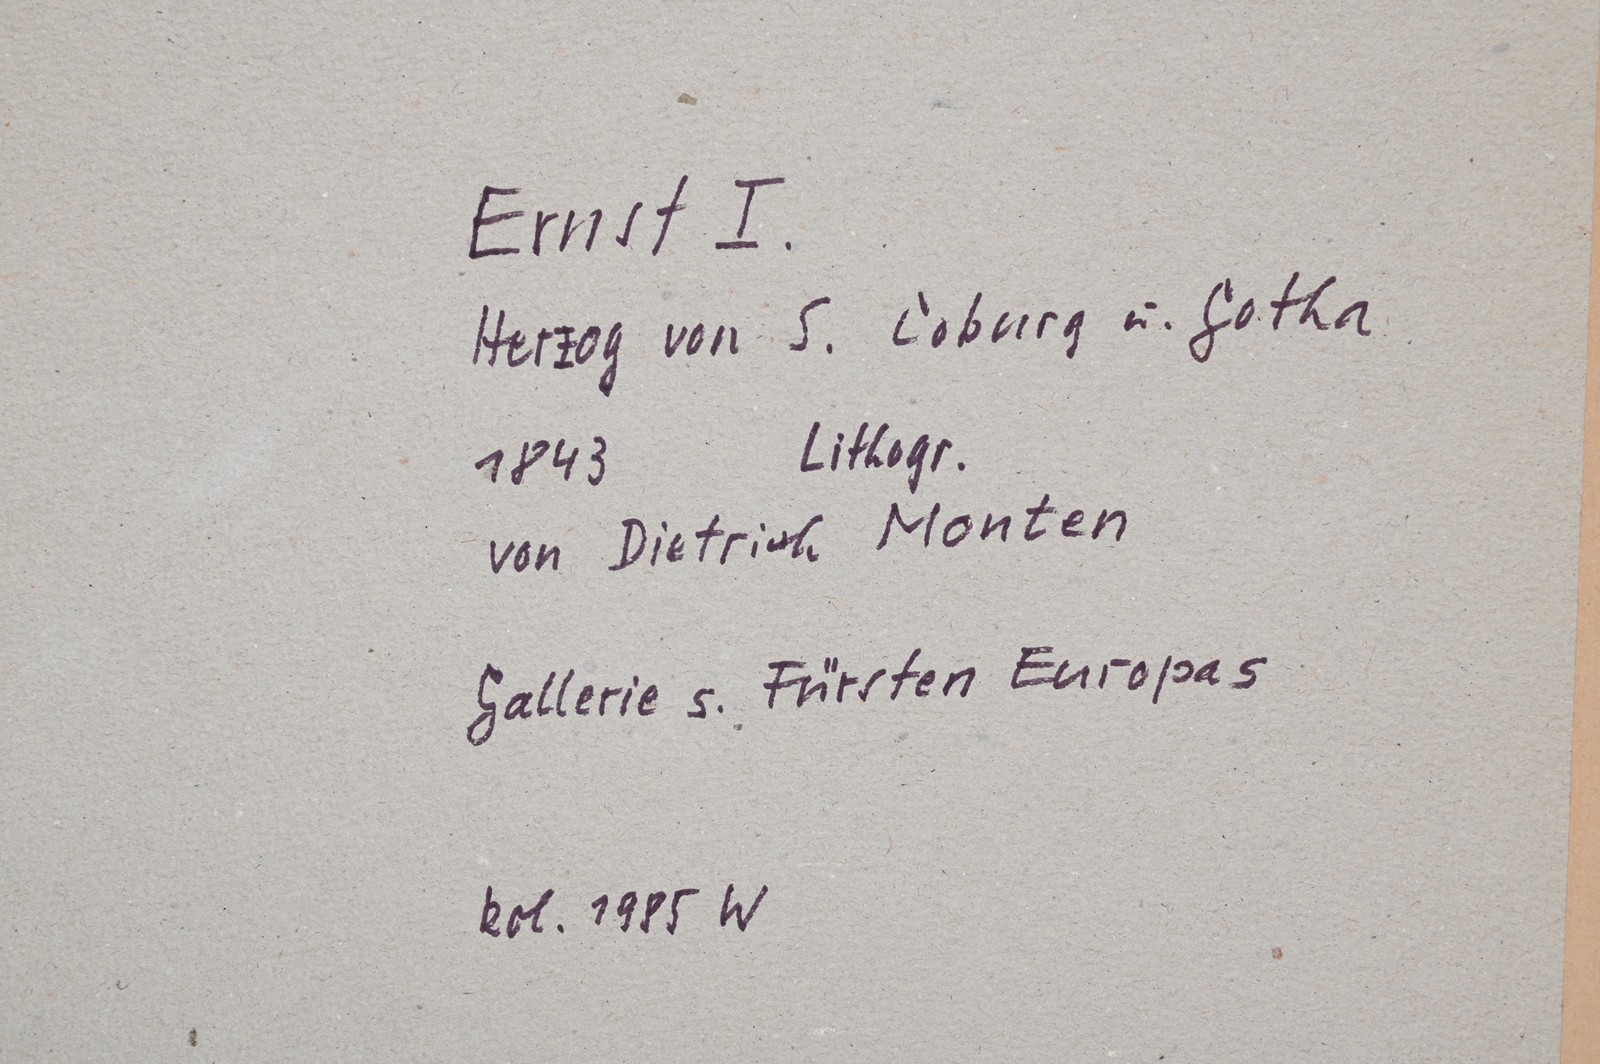 Ernst I.
Herzog von S. Coburg u. Gotha
1843 Lithogr.
von Dietrich Monten
Gallerie s. Fürsten Europas
kol. 1985 W